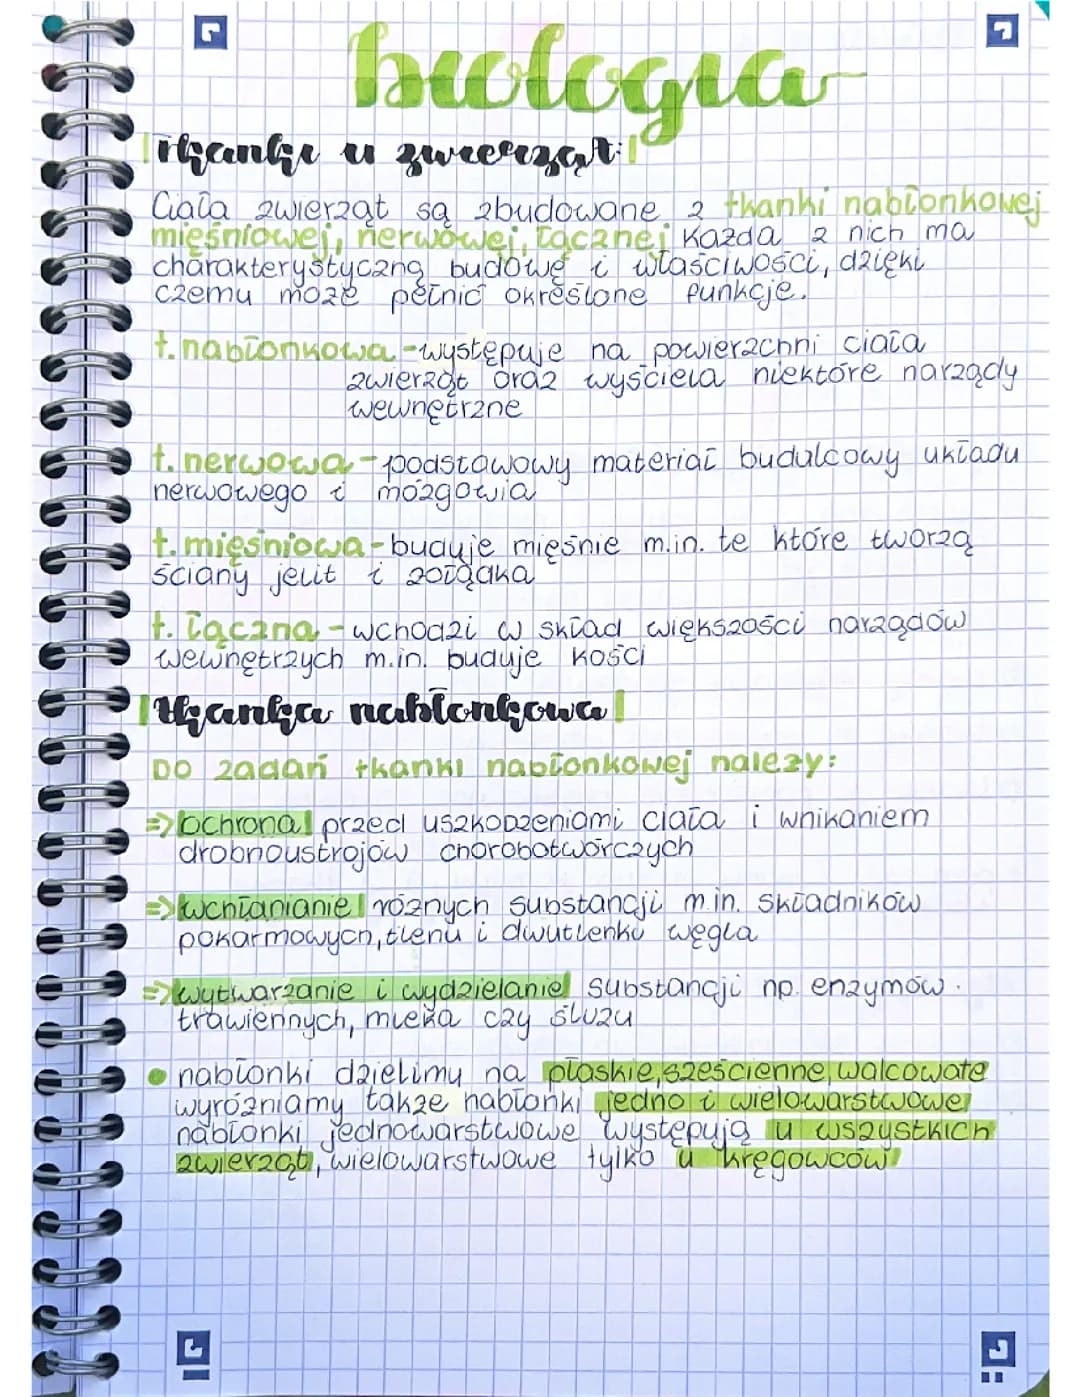 biologia
Tkanki u zwierząt:
Ciała zwierząt są zbudowane z tkanki nabłonkowej
mięśniowej, nerwowej, łącznej każda z nich ma
charakterystyczną budowę i właściwości, dzięki
czemu może pełnić określone funkcje.
t. nabłonkowa - występuje na powierzchni ciała
zwierząt oraz wyściela niektóre narządy
wewnętrzne
t. nerwowa - podstawowy materiał budulcowy układu
nerwowego i mózgowia
t. mięśniowa - buduje mięśnie m.in. te które tworzą
ściany jelit i żołądka
t. łączna - wchodzi w skład większości narządów
wewnętrzych m.in. buduje kości
tkanka nabłonkowa
DO zadań tkanki nabłonkowej należy:
=> ochrona przed uszkodzeniami ciała i wnikaniem
drobnoustrojów chorobotwórczych
=> wchłanianie różnych substancji m.in. składników
pokarmowych, tlenu i dwutlenku węgla
=> wytwarzanie i wydzielanie substancji np. enzymów.
trawiennych, mleka czy śluzu
• nabłonki dzielimy na płaskie, sześcienne, walcowate
wyróżniamy także nabłonki jedno i wielowarstwowe
nabłonki jednowarstwowe występują u wszystkich
zwierząt, wielowarstwowe tylko u kręgowców